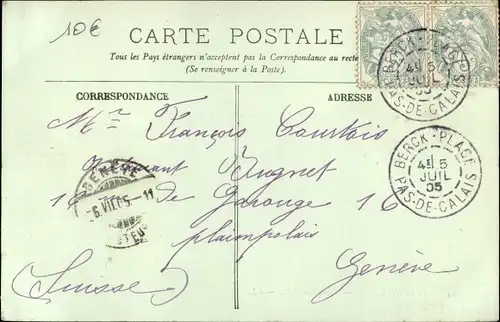 10€
CARTE POSTALE
Tous les Pays étrangers n'acceptent pas la Correspondance au recto
(Se renseigner à la Poste).
CORRESPONDANCE
ADRESSE
BERCK-PLACE
4E 5
JUIL
05
PAS-DE-CALAIS
BERCK-PLACE
4E 5
JUIL
05
PAS-DE-CALAIS
Mr François Courtois
GENÈVE
-6.VII.05.-11
16 de Carouge 16
plainpalais
Genève
(Suisse)